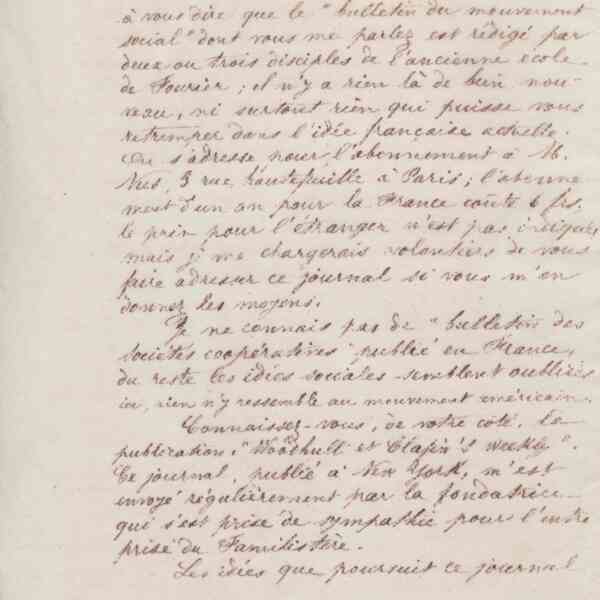 à vous dire que le "bulletin du mouvement
social" dont vous me parlez est rédigé par
deux ou trois disciples de l'ancienne école
de Fourier ; il n'y a rien là de bien nou-
veau, ni surtout rien qui puisse vous
retremper dans l'idée française actuelle.
On s'adresse pour l'abonnement à M.
Nus, 3 rue hautefeuille à Paris ; l'abonne
ment d'un an pour la France coûte 6 frs.
le prix pour l'étranger n'est pas indiqué
mais je me chargerais volontiers de vous
faire adresser ce journal si vous m'en
donnez les moyens.
Je ne connais pas de "bulletin des
sociétés coopératives" publié en France,
du reste les idées sociales semblent oubliées
ici, rien n'y ressemble au mouvement américain.
Connaissez-vous, de votre côté, la
publication, "Woodhull et Claflin's weekly".
Ce journal, publié à New York, m'est
envoyé régulièrement par la fondatrice
qui s'est prise de sympathie pour l'entre
prise du Familistère.
Les idées que poursuit ce journal